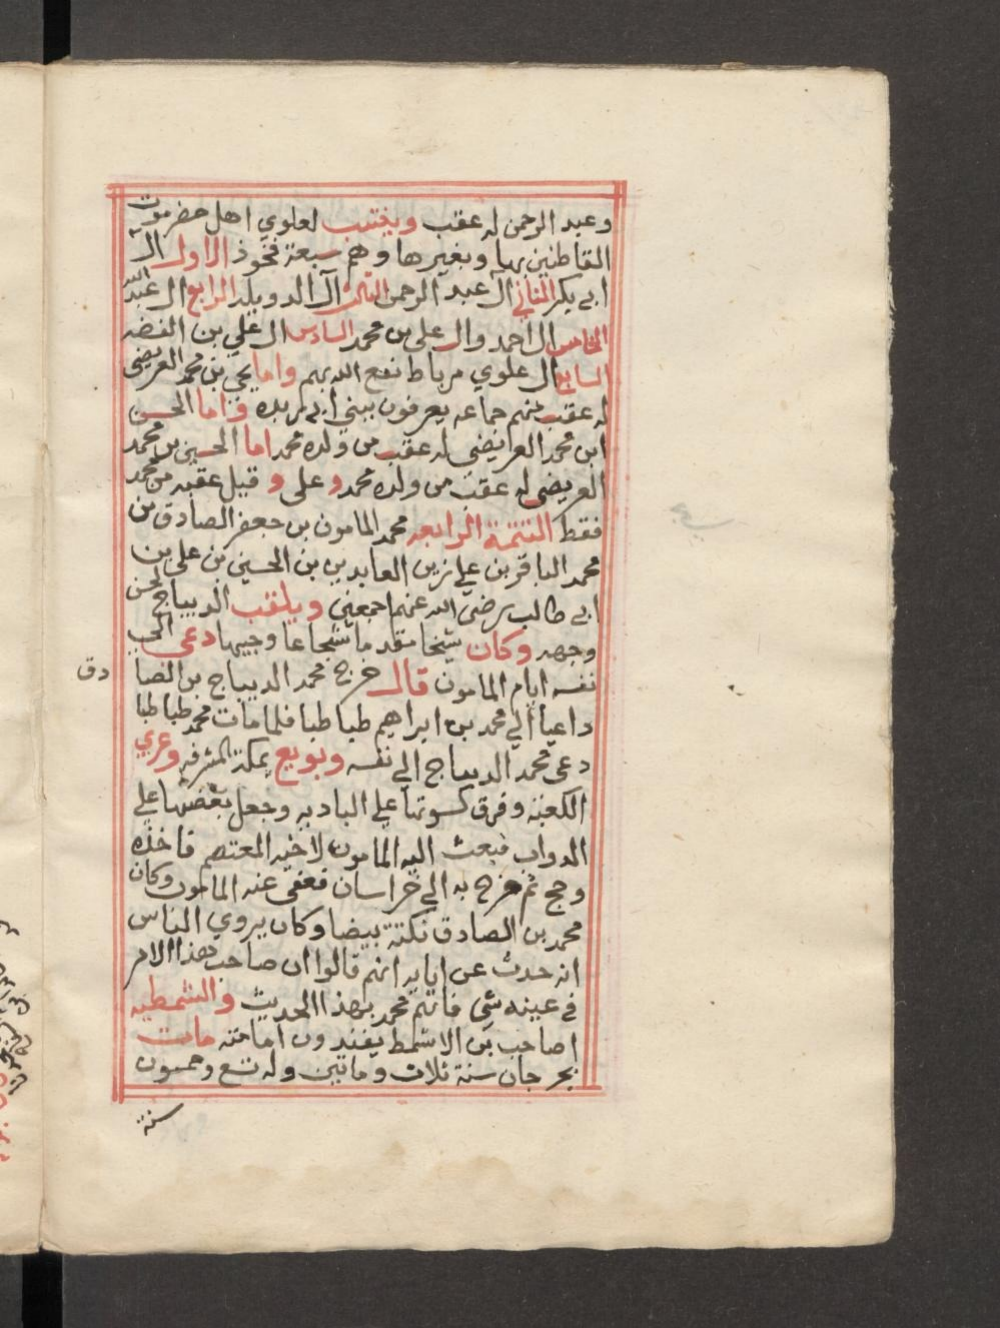 وعبد الرحمن له عقب وينتسب لعلوي اهل حضرموت
القاطنين بها وبغيرها وهم سبعة فخوذ الاول ال
ابي بكر الثاني ال عبد الرحمن الثالث ال الدويله الرابع ال عبد الله
الخامس ال احمد وال علي بن محمد السادس ال علي بن الفقيه
السابع ال علوي مرباط نفع الله بهم واما يحي بن محمد العريضي
له عقب منهم جماعه يعرفون ببني ابي واما الحسن
ابن محمد العرايضي له عقب من ولده محمد اما الحسين بن محمد
العريضي له عقب من ولده محمد وعلى و قيل عقبه من محمد
فقط التتمة الرابعه محمد المامون بن جعفر الصادق بن
محمد الباقر بن علي زين العابدين بن الحسين بن علي بن
ابي طالب رضي الله عنهم اجمعين ويلقب الديباج لحسن
وجهه وكان شيخا مقدما شجاعا وجيها دعى الى
نفسه ايام المامون قال خرج محمد الديباج بن الصا
دق
داعيا الي محمد بن ابراهيم طباطبا فلما مات محمد طباطبا
دعى محمد الديباج الي نفسه وبويع بمكة المشرفه وعري
الكعبة وفرق كسوتها علي الباديه وجعل بعضها علي
الدواب فبعث اليه المامون لاخيه المعتصم فاخذه
وحج ثم خرج به الي خراسان فعفى عنه المامون وكان
محمد بن الصادق نكتة بيضا وكان يروي الناس
انه حدث عن ابايه انهم قالوا ان صاحب هذا الامر
في عينه شي فاتهم محمد بهذا الحديث والشمطيه
اصاحب بن الاشمط يفندون امامته مات
بجرجان سنة ثلاث وماتين وله تسع وخمسون
سنة